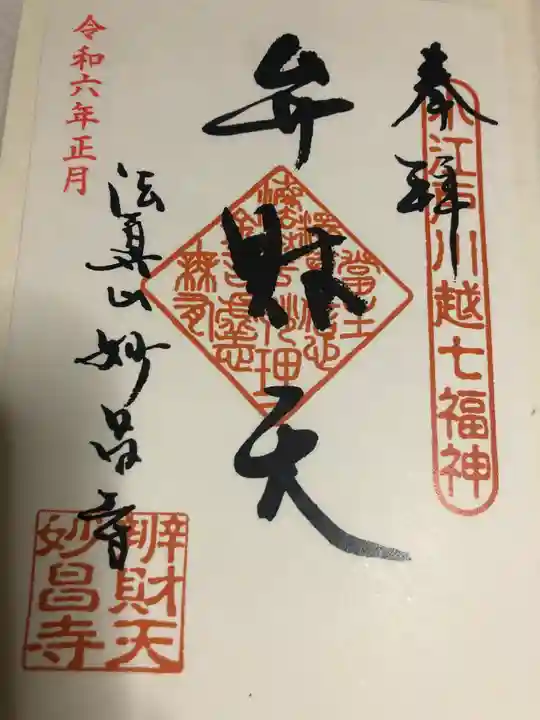 奉拝
小江戸川越七福神
弁財天
令和六年正月
法眞山妙昌寺
辨財天
妙昌寺